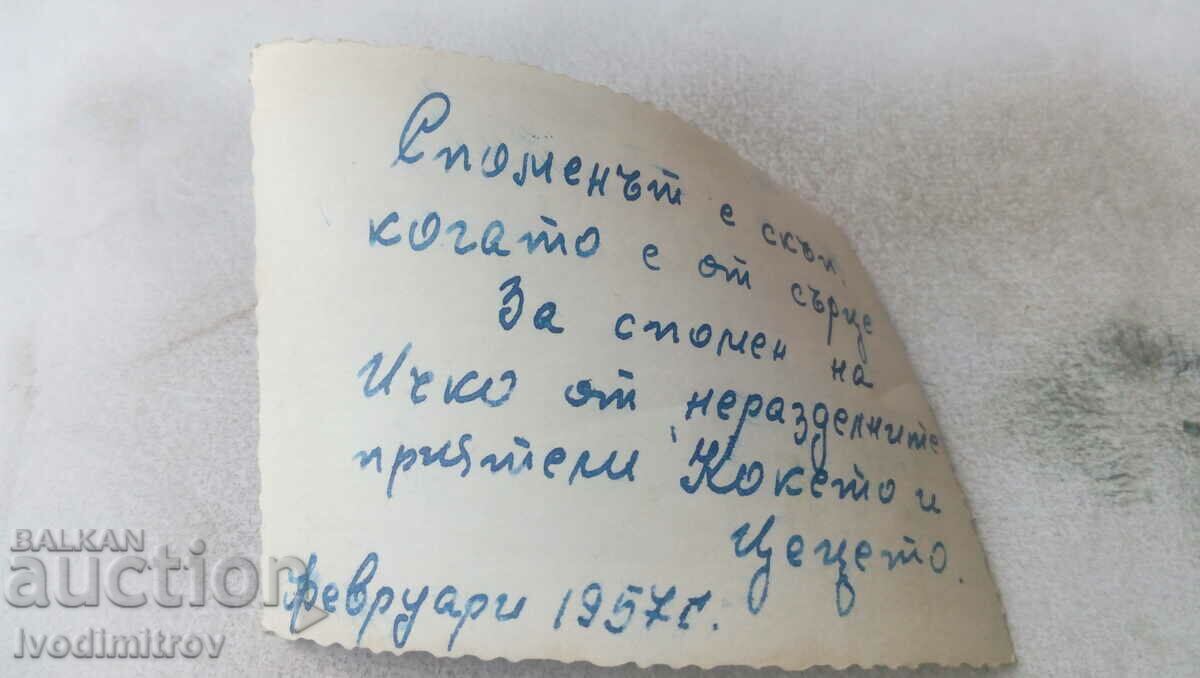 Споменът е скъп,
когато е от сърце
За спомен на
Ичко от неразделните
приятели Кокето и
Цецето.
Февруари 1957 г.
BALKAN
auction
Ivodimitrov